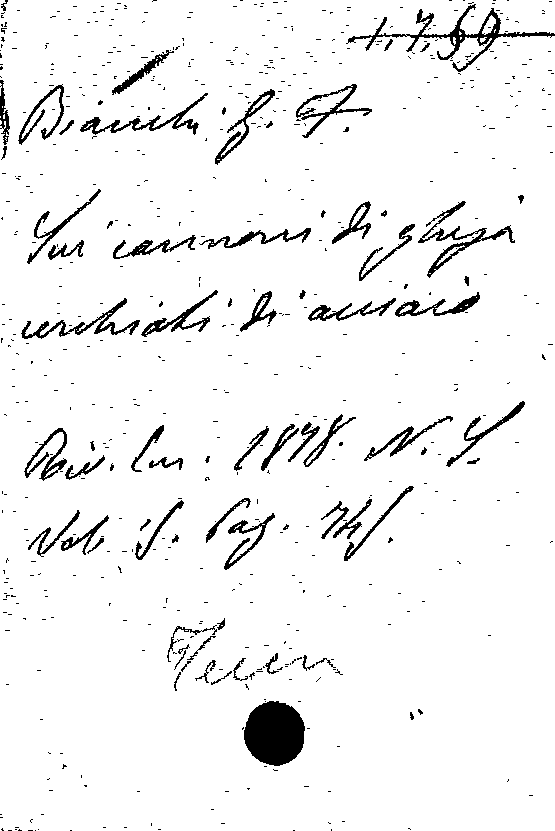 1.7.59
Bianchi G. F.
Sui cannoni di ghisa
cerchiati di acciaio
Riv. Cur. 1878. N. S.
Vol. 5. Pag. 745.